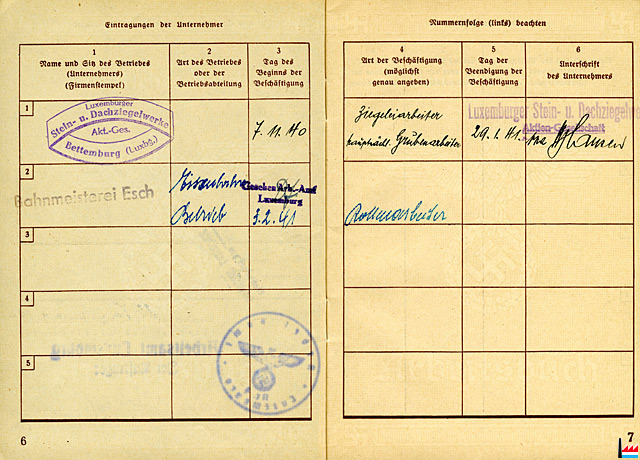 Eintragungen der Unternehmer
1
Name und Sitz des Betriebes
(Unternehmers)
(Firmenstempel)
2
Art des Betriebes
oder der
Betriebsabteilung
3
Tag des
Beginns der
Beschäftigung
1
Luxemburger
Stein- u. Dachziegelwerke
Akt.-Ges.
Bettemburg (Luxbg.)
7. 11. 40
2
Bahnmeisterei Esch
Betrieb
Gesehen Arb.-Amt
Luxemburg
3.2.41
3
4
5
6
Nummernfolge (links) beachten
4
Art der Beschäftigung
(möglichst
genau angeben)
5
Tag der
Beendigung der
Beschäftigung
6
Unterschrift
des Unternehmers
Ziegeleiarbeiter
Grubenarbeiter
29. 1. 41.
Luxemburger Stein- u. Dachziegelwe
Aktien-Gesellschaft
Rottenarbeiter
7